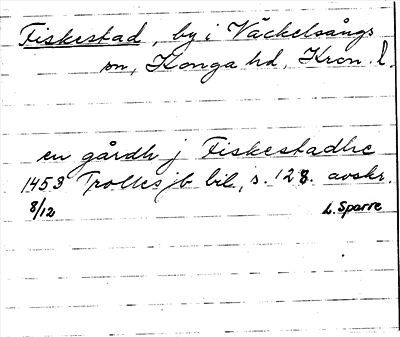 Fiskestad, by i Väckelsångs
sn, Konga hd, Kron. l.
en gårdh j Fiskestadhe
1453 Trolles jb bil, s. 128. avskr.
8/12 L. Sparre